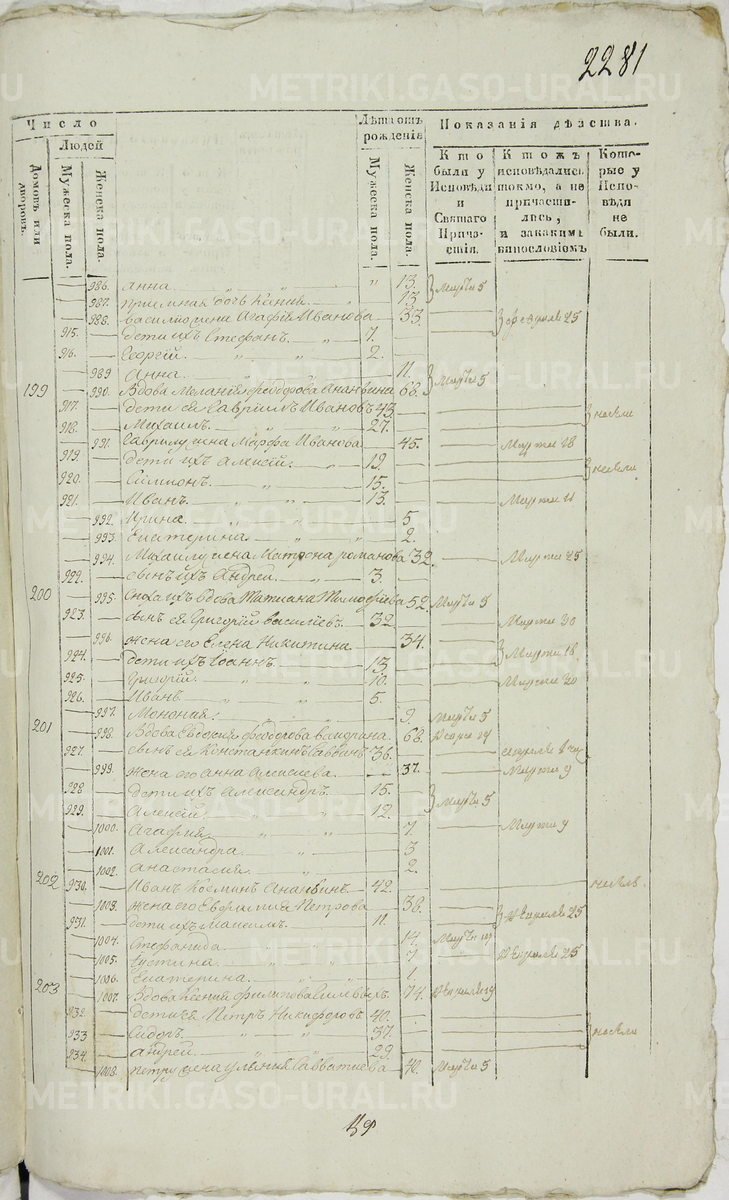 2281
METRIKI.GASO-URAL.RU
Число
Людей
Домовъ или дворовъ.
Мужеска пола.
Женска пола.
Лѣта отъ рожденія
Мужеска пола.
Женска пола.
Показанія дѣиства.
Кто были у Исповѣди и Святаго Причастія.
Ктожъ исповѣдались токмо, а не причастились, и закакимъ винословіомъ
Которые у Исповѣди не были.
986. Анна. 13. Марта 5
987. приемная дочь 13.
988. василію жена Агафія Иванова 33 февраля 25
915. дети ихъ Стефанъ. 7.
916. Георгій. 2.
989 Анна. 11. Марта 5
199 990. Вдова Меланія Феодорова Ананьина 68.
917. дети ея Гавріилъ Ивановъ 43. небыли
918. Михаилъ. 27.
991. Гаврилу жена Марфа Иванова 45. Марта 18
919. дети ихъ Алексій. 19. небыли
920. Симионъ. 15.
921. Иванъ. 13. Марта 11
992. Ирина. 5
993. Екатерина. 2.
994. Михаилу жена Матрона романова 32. Марта 25
922. сынъ ихъ Андреи. 3.
200 995. вдова Татиана Тимофіева 52 Марта 5
923. сынъ ея Григорій василіевъ. 32 Марта 30
996. жена его Елена Никитина 34. Марта 18
924. дети ихъ Іоаннъ. 13.
925. Григорій. 10. Марта 20
926. Иванъ 5.
997. 9. Марта 5
201 998. Вдова Евдокія Феодорова 68.
927. сынъ ея Константинъ 36.
999. жена его Анна Алексиева. 37. Марта 9
928. дети ихъ Александръ. 15. Марта 5
929. Алексій. 12.
1000. Агафия 7. Марта 9
1001. Александра. 3
1002. Анастасия. 2.
202 930. Иванъ Косминъ Ананьинъ 42. небылъ
1003. жена его Евфимия Петрова 38. Апреля 25
931. дети ихъ Максимъ. 11.
1004. Стефанида. 14.
1005. Устина. 7 Апреля 25
1006. Екатерина. 1.
203 1007. Вдова Ксения филипова 74.
932. дети ея Петръ Никифоровъ 40.
933 Сидоръ. 37. небыли
934. андрей. 29.
1008. петру жена улияния Савватиева 40. Марта 5